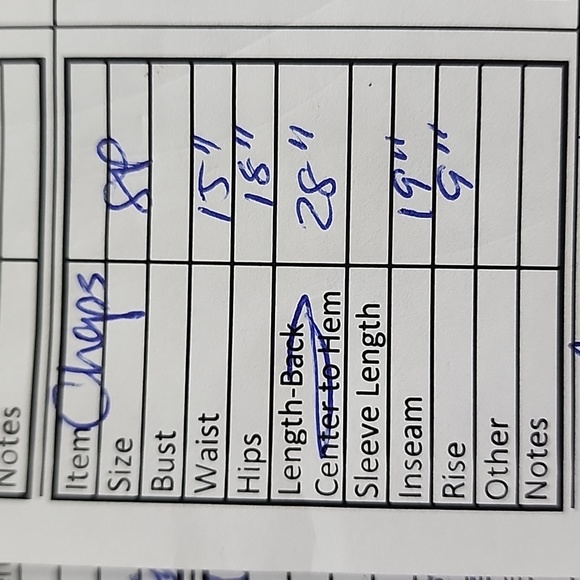 Notes
Item Chaps
Size 8P
Bust
Waist 15"
Hips 18"
Length-Back
Center to Hem 28"
Sleeve Length
Inseam 19"
Rise 9"
Other
Notes